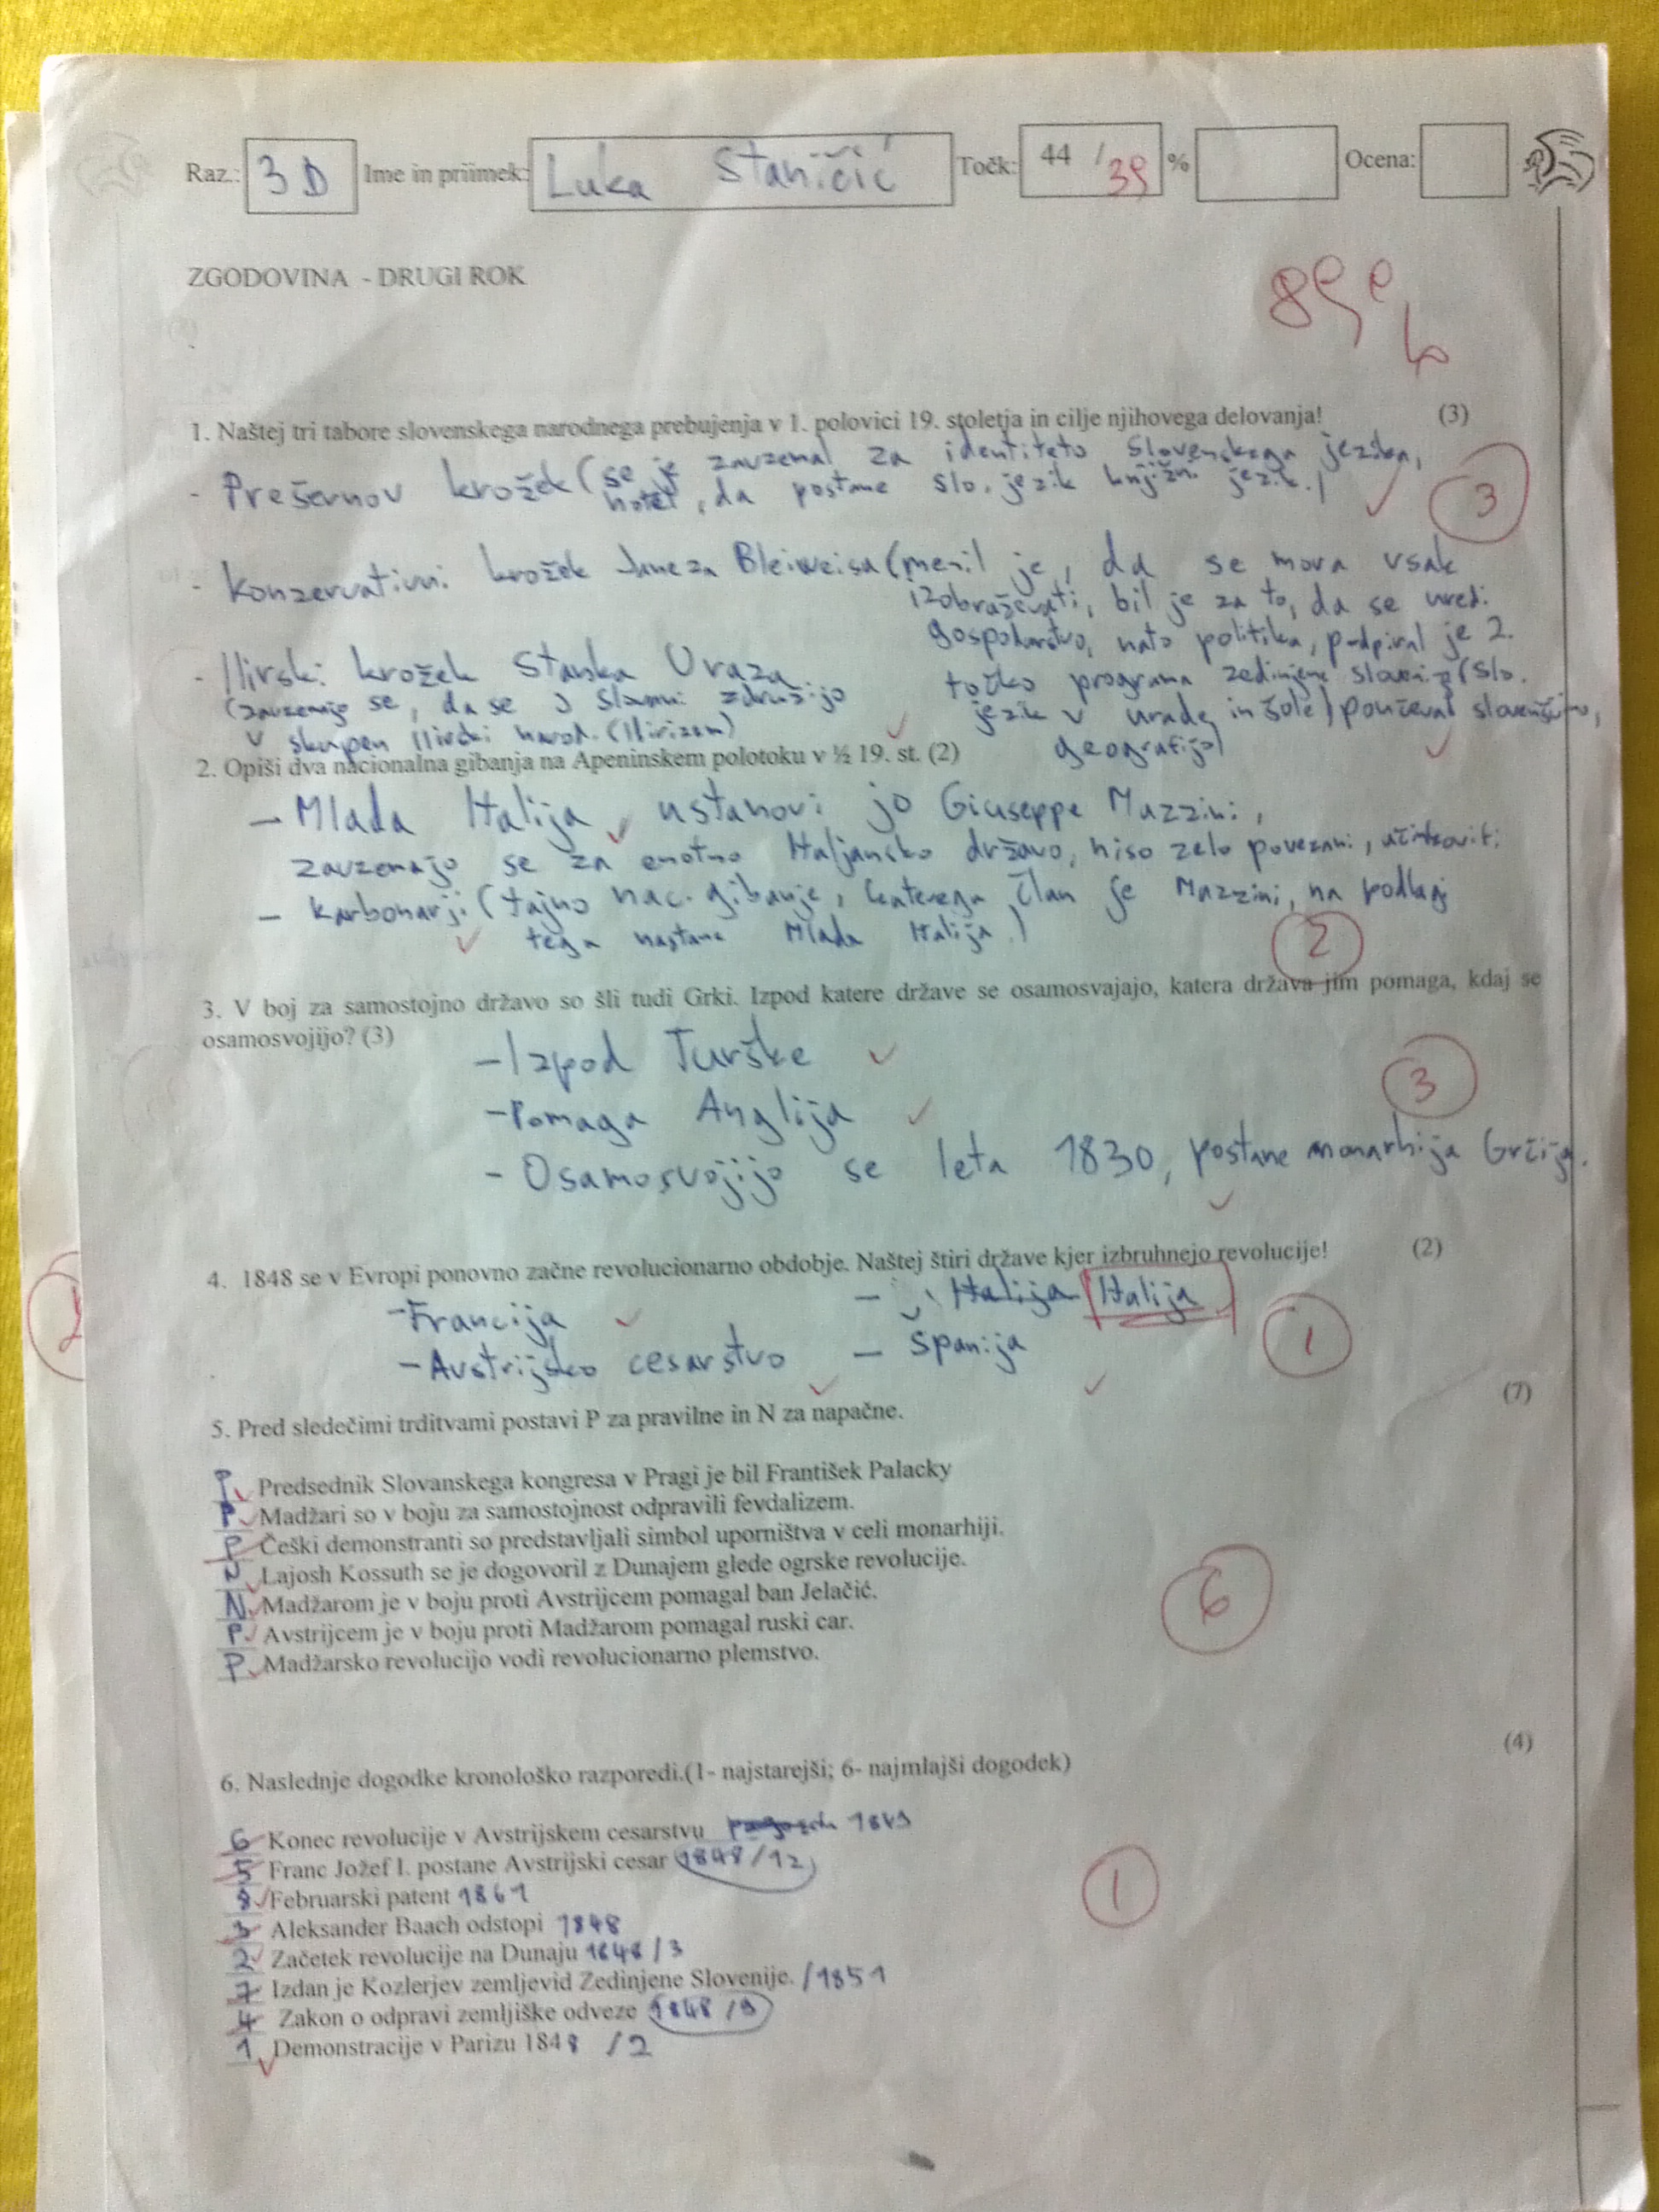 Raz.: 3D Ime in priimek: Luka Staničić Točk: 44 / 39 % Ocena:
ZGODOVINA - DRUGI ROK
89%
1. Naštej tri tabore slovenskega narodnega prebujenja v 1. polovici 19. stoletja in cilje njihovega delovanja! (3)
- Prešernov krožek (se je zavzemal za identiteto slovenskega jezika,
hotel, da postane slo. jezik knjižni jezik.)
3
- Konzervativni krožek Janeza Bleiweisa (menil je, da se mora vsak
izobraževati, bil je za to, da se uredi
gospodarstvo, nato politika, podpiral je 2.
- Ilirski krožek Stanka Vraza
točko programa zedinjene slovenije (slo.
(zavzemajo se, da se J Slovani združijo
jezik v urade in šole) poučeval slovenščino,
v skupen Ilirski narod. (Ilirizem)
geografijo)
2. Opiši dva nacionalna gibanja na Apeninskem polotoku v ½ 19. st. (2)
- Mlada Italija, ustanovi jo Giuseppe Mazzini,
zavzemajo se za enotno Italjansko državo, niso zelo povezani, učinkoviti
- Karbonarji (tajno nac. gibanje, katerega član je Mazzini, na podlagi
tega nastane Mlada Italija.)
2
3. V boj za samostojno državo so šli tudi Grki. Izpod katere države se osamosvajajo, katera država jim pomaga, kdaj se
osamosvojijo? (3)
- Izpod Turške
- Pomaga Anglija
3
- Osamosvojijo se leta 1830, postane monarhija Grčija.
4. 1848 se v Evropi ponovno začne revolucionarno obdobje. Naštej štiri države kjer izbruhnejo revolucije! (2)
- Francija - Italija Italija
- Avstrijsko cesarstvo - Španija
1
5. Pred sledečimi trditvami postavi P za pravilne in N za napačne. (7)
P Predsednik Slovanskega kongresa v Pragi je bil František Palacky
P Madžari so v boju za samostojnost odpravili fevdalizem.
P Češki demonstranti so predstavljali simbol uporništva v celi monarhiji.
N Lajosh Kossuth se je dogovoril z Dunajem glede ogrske revolucije.
N Madžarom je v boju proti Avstrijcem pomagal ban Jelačić.
P Avstrijcem je v boju proti Madžarom pomagal ruski car.
P Madžarsko revolucijo vodi revolucionarno plemstvo.
6
6. Naslednje dogodke kronološko razporedi.(1- najstarejši; 6- najmlajši dogodek) (4)
6 Konec revolucije v Avstrijskem cesarstvu 1849
5 Franc Jožef I. postane Avstrijski cesar 1848/12
8 Februarski patent 1861
3 Aleksander Baach odstopi 1848
2 Začetek revolucije na Dunaju 1848/3
7 Izdan je Kozlerjev zemljevid Zedinjene Slovenije. /1851
4 Zakon o odpravi zemljiške odveze 1848/9
1 Demonstracije v Parizu 1848 /2
1